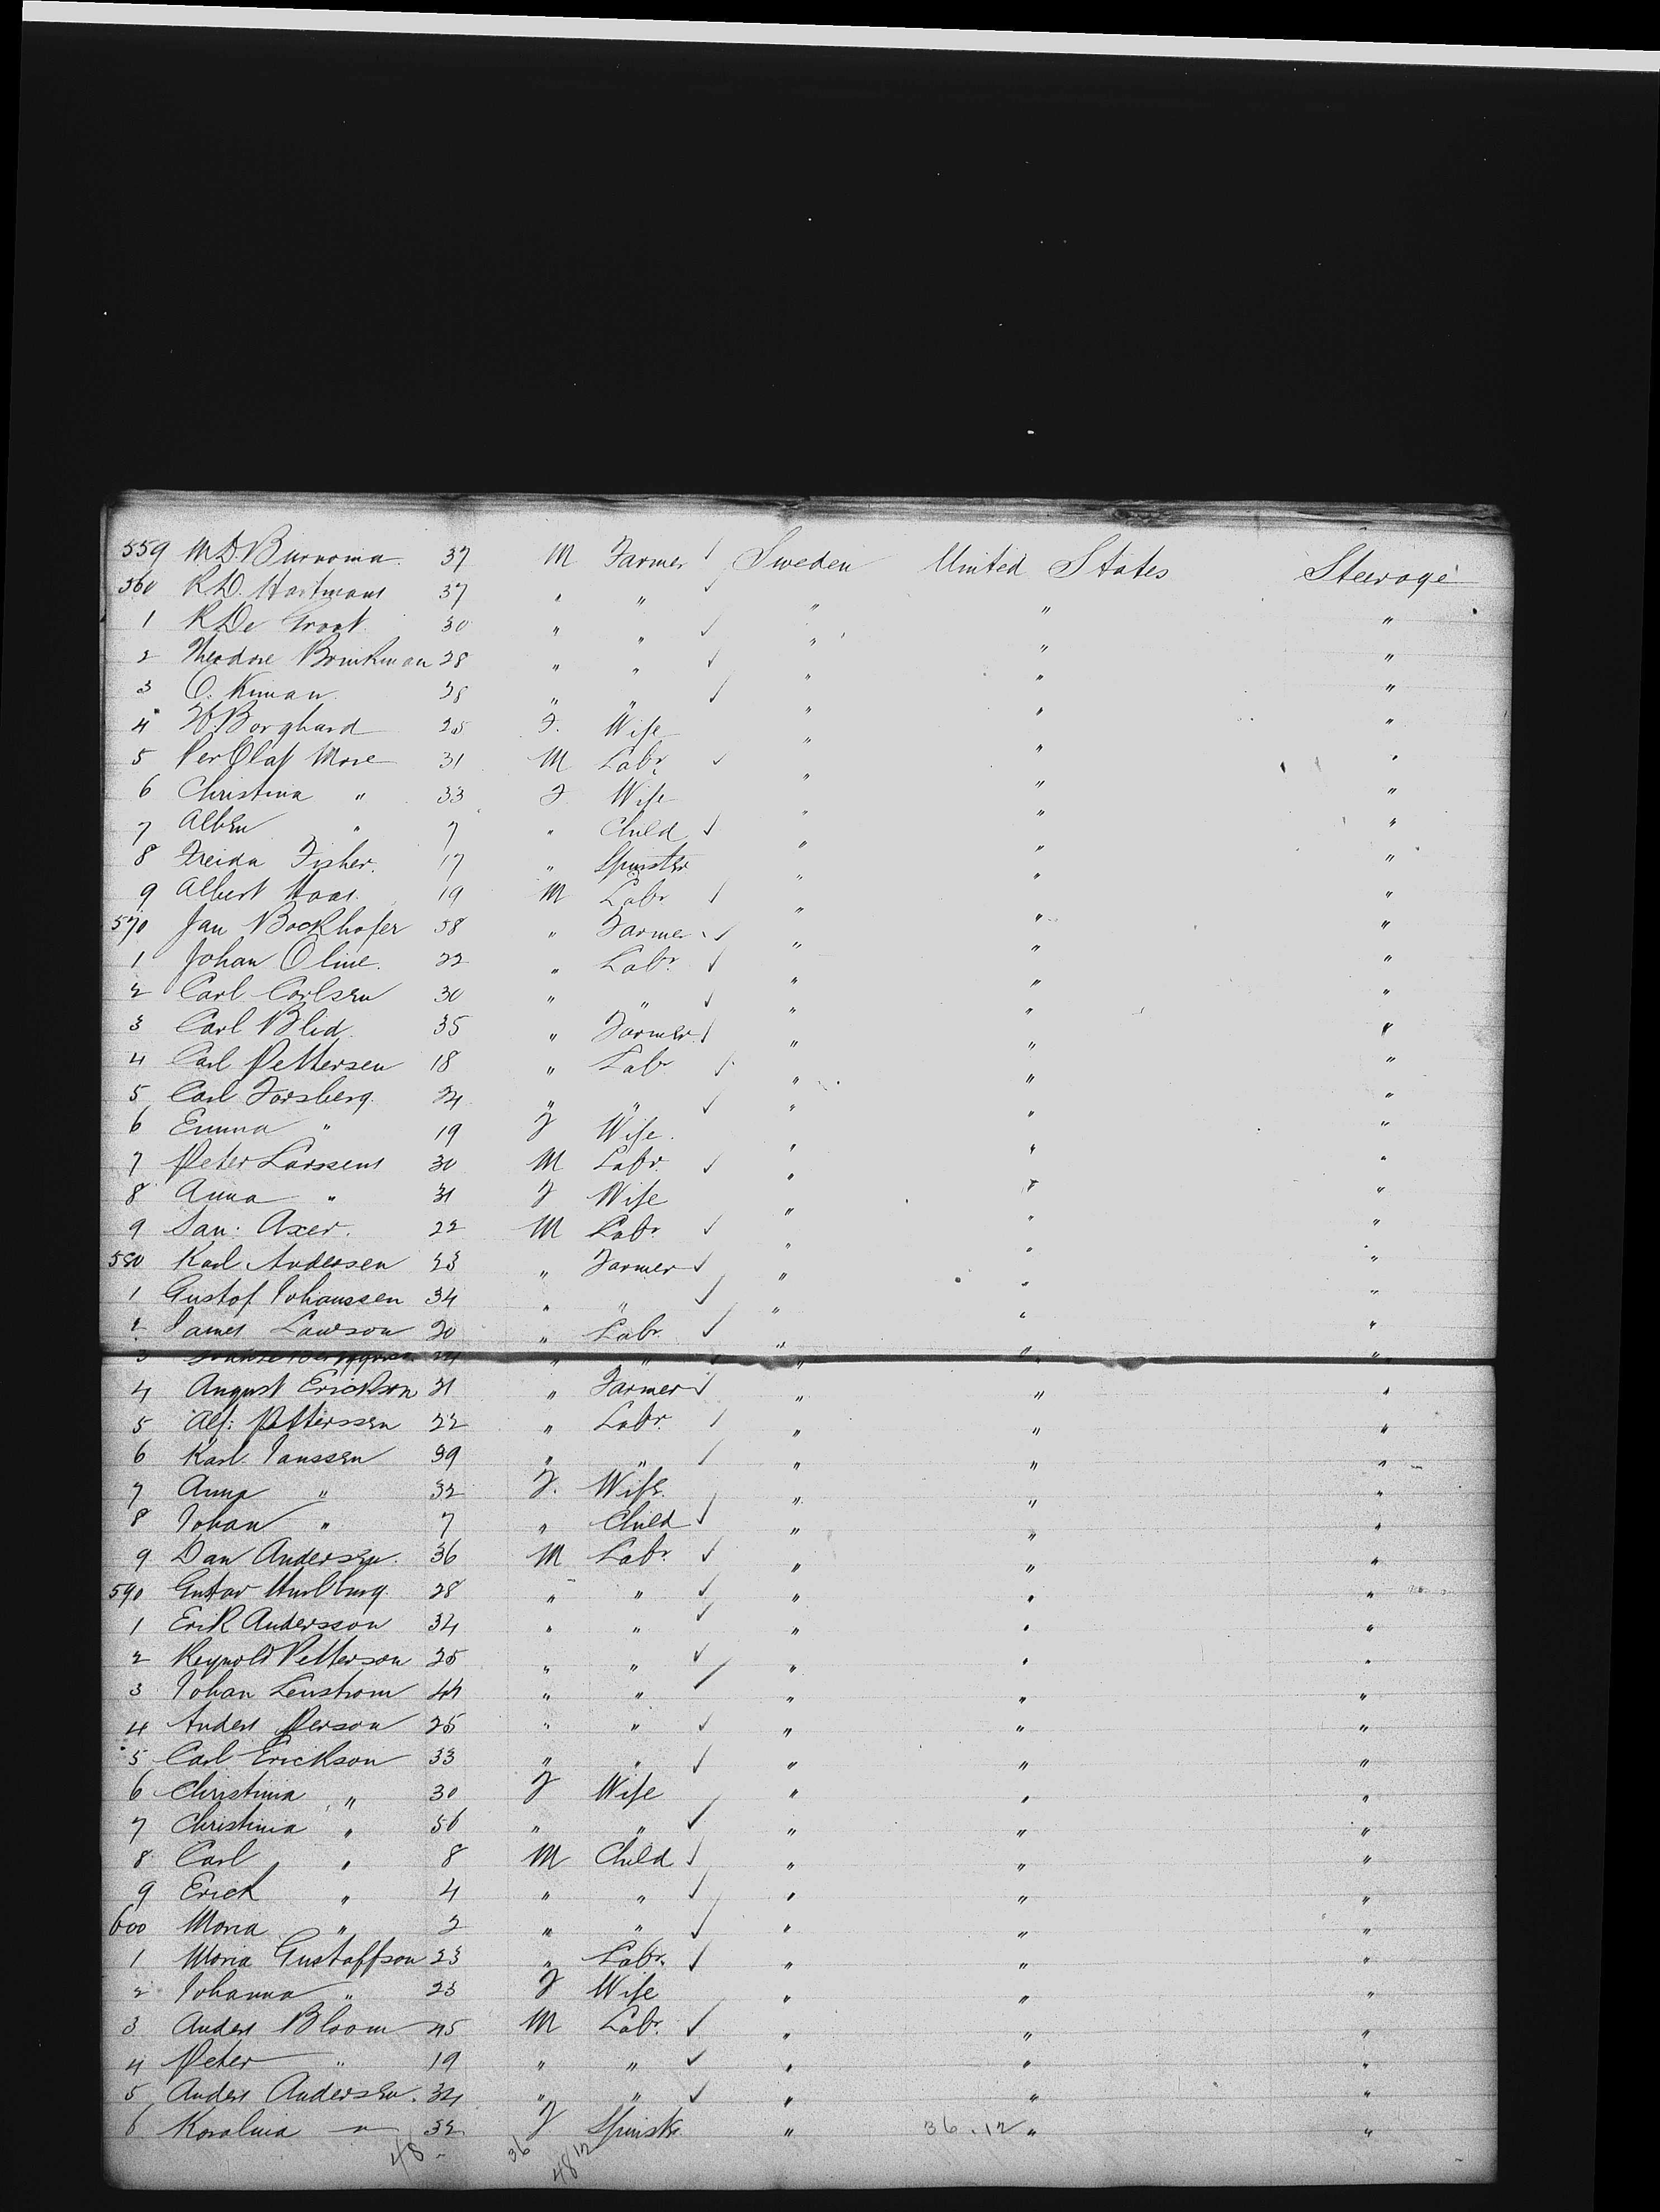 559 M.D. Buurma 37 M Farmer Sweden United States Steerage
560 R.D. Hartmans 37 " " " " "
1 R De Groot 30 " " " " "
2 Theodore Brinkman 28 " " " " "
3 O. Kuman 28 " " " " "
4 H. Borghard 25 F. Wife " " "
5 Per Olaf More 31 M Labr " " "
6 Christina " 33 F Wife " " "
7 Alben " 7 " Child " " "
8 Freida Fisher 17 " Spinster " " "
9 Albert Haas 19 M Labr " " "
570 Jan Bockhofer 58 " Farmer " " "
1 Johan Oline 22 " Labr " " "
2 Carl Carlsen 30 " " " " "
3 Carl Blid 35 " Farmer " " "
4 Carl Pettersen 18 " Labr " " "
5 Carl Forsberg 24 " " " " "
6 Emma " 19 F Wife " " "
7 Peter Larssens 30 M Labr " " "
8 Anna " 31 F Wife " " "
9 San. Axer. 22 M Labr " " "
580 Karl Andersen 23 " Farmer " " "
1 Gustof Johanssen 34 " " " " "
2 James Lawson 20 " Labr " " "
3 " " " " "
4 August Erickson 21 " Farmer " " "
5 Alf: Petterssen 22 " Labr " " "
6 Karl Janssen 39 " " " " "
7 Anna " 32 F. Wife " " "
8 Johan " 7 " Child " " "
9 Dan Andersen 36 M Labr " " "
590 Gustav 28 " " " " "
1 Erik Andersson 34 " " " " "
2 Reynold Petterson 25 " " " " "
3 Johan Lenstrom 44 " " " " "
4 Anders Person 25 " " " " "
5 Carl Erickson 33 " " " " "
6 Christina " 30 F Wife " " "
7 Christina " 56 " " " " "
8 Carl " 8 M Child " " "
9 Erick " 4 " " " " "
600 Maria " 2 " " " " "
1 Maria Gustaffson 23 " Labr. " " "
2 Johanna " 23 F Wife " " "
3 Anders Bloom 45 M Labr. " " "
4 Peter " 19 " " " " "
5 Anders Andersen 34 " " " " "
6 Karolina " 32 F Spinstr " 36.12 " "
48 36 12
48